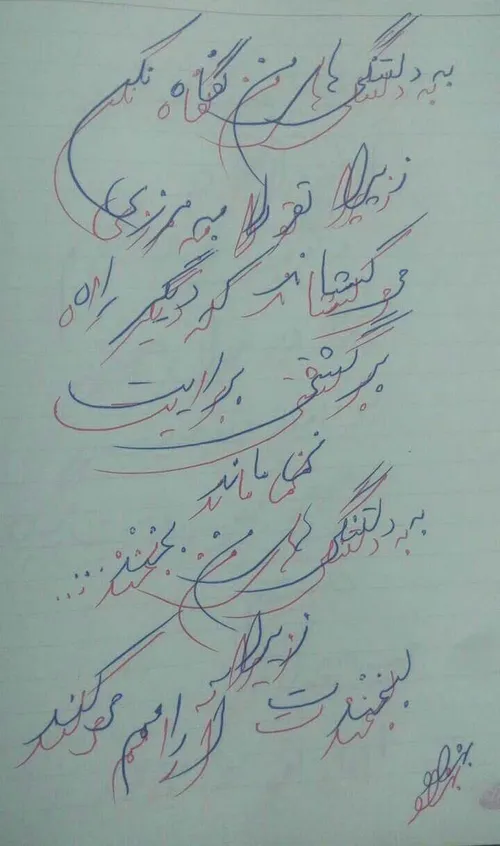 به دلتنگی های من نگاه نکن
زیرا تو را به مرزی
می کشاند که دیگر راه
برگشتی برایت
نمی ماند
به دلتنگی های من بخند...
زیرا
لبخندت آرامم می کند